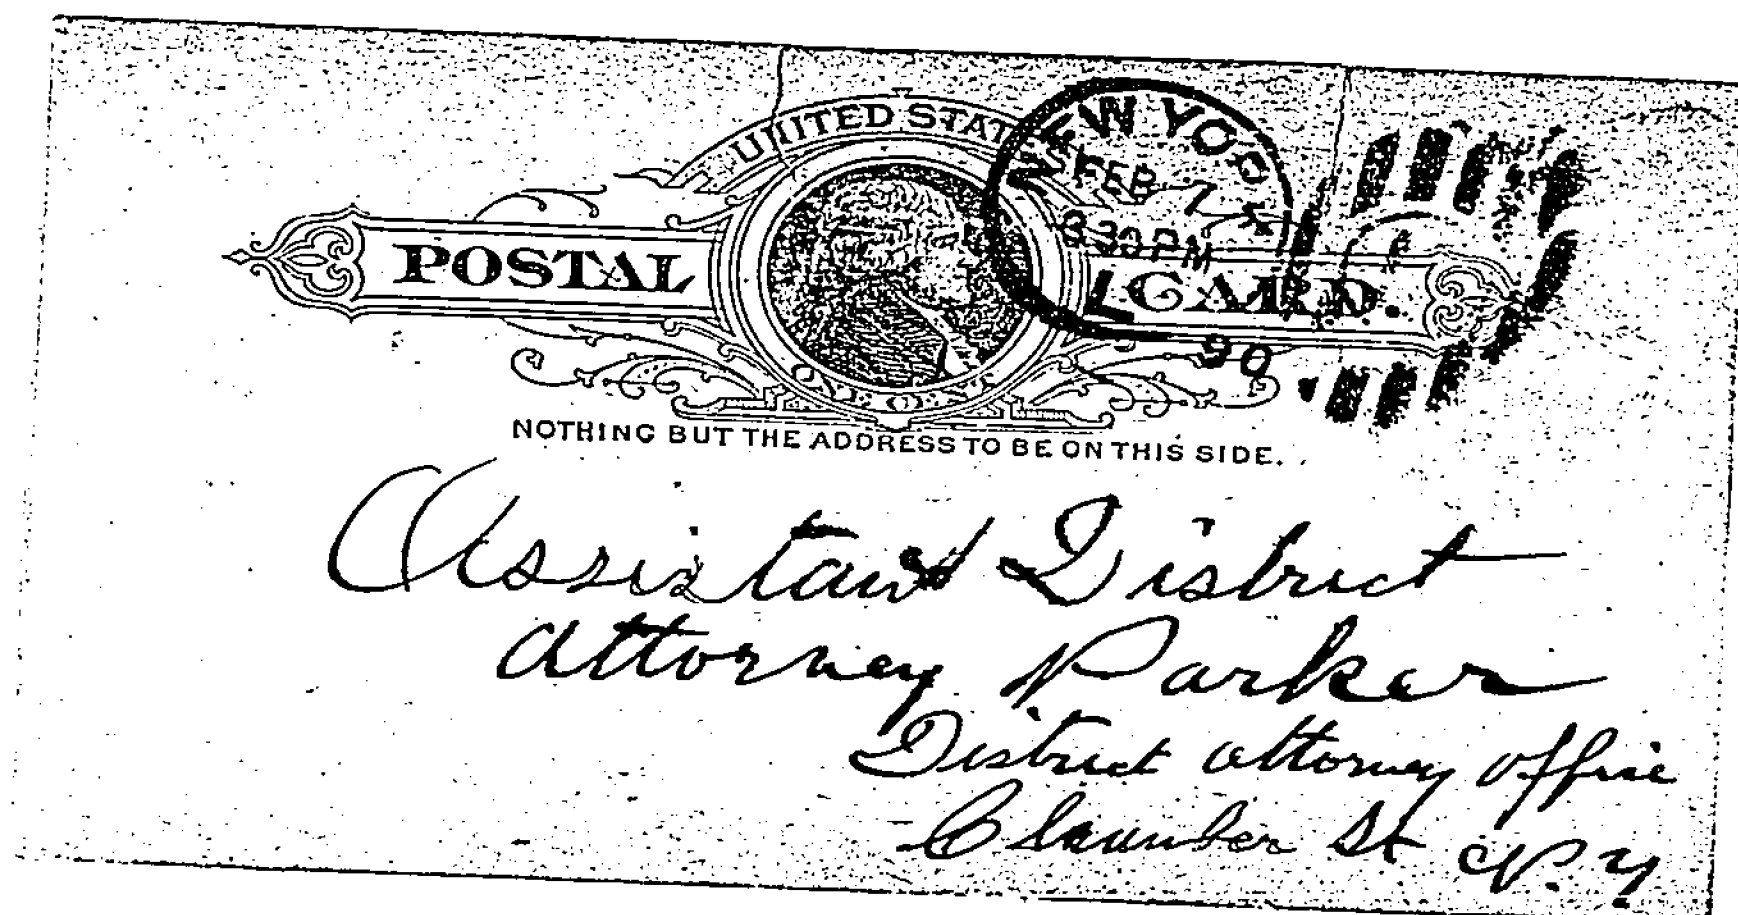 UNITED STAT
NEW YO
FEB 7
330PM
POSTAL CARD.
90
ONE CENT
NOTHING BUT THE ADDRESS TO BE ON THIS SIDE.
Assistant District
Attorney Parker
District attorney office
Chamber St N.Y